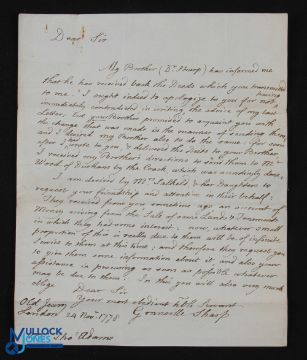 Dear Sir
My Brother (Dr Sharp) has informed me
that he has received back the Deeds which you transmitted
to me. I ought indeed to apologize to you for not having
immediately contradicted in writing, the advice of my last
Letter, but your Brother promised to acquaint you with
the change that was made in the manner of sending them,
and I desired my Brother also to do the same: for soon
after I wrote to you, I delivered the Deeds to your Brother
I received my Brother's directions to send them to Mr
Ward of Durham by the Coach, which was accordingly done.
I am desired by Mrs & her Daughters to
request your friendship and attention in their behalf:
They received from you some time ago an account of
Money arising from the Sale of some Lands & Tenements
in which they had some interest; now, whatever small
proportion of this is really due to them will be of infinite
Service to them at this time; and therefore they request you
to give them some information about it; and also your
assistance in procuring as soon as possible whatever
may be due to them. In this you will also very much
oblige
Dear Sir
Your most obedient hble Servant
Granville Sharp
Old Jewry
London 24 Nov. 1778
Thos Adams
MULLOCK
JONES